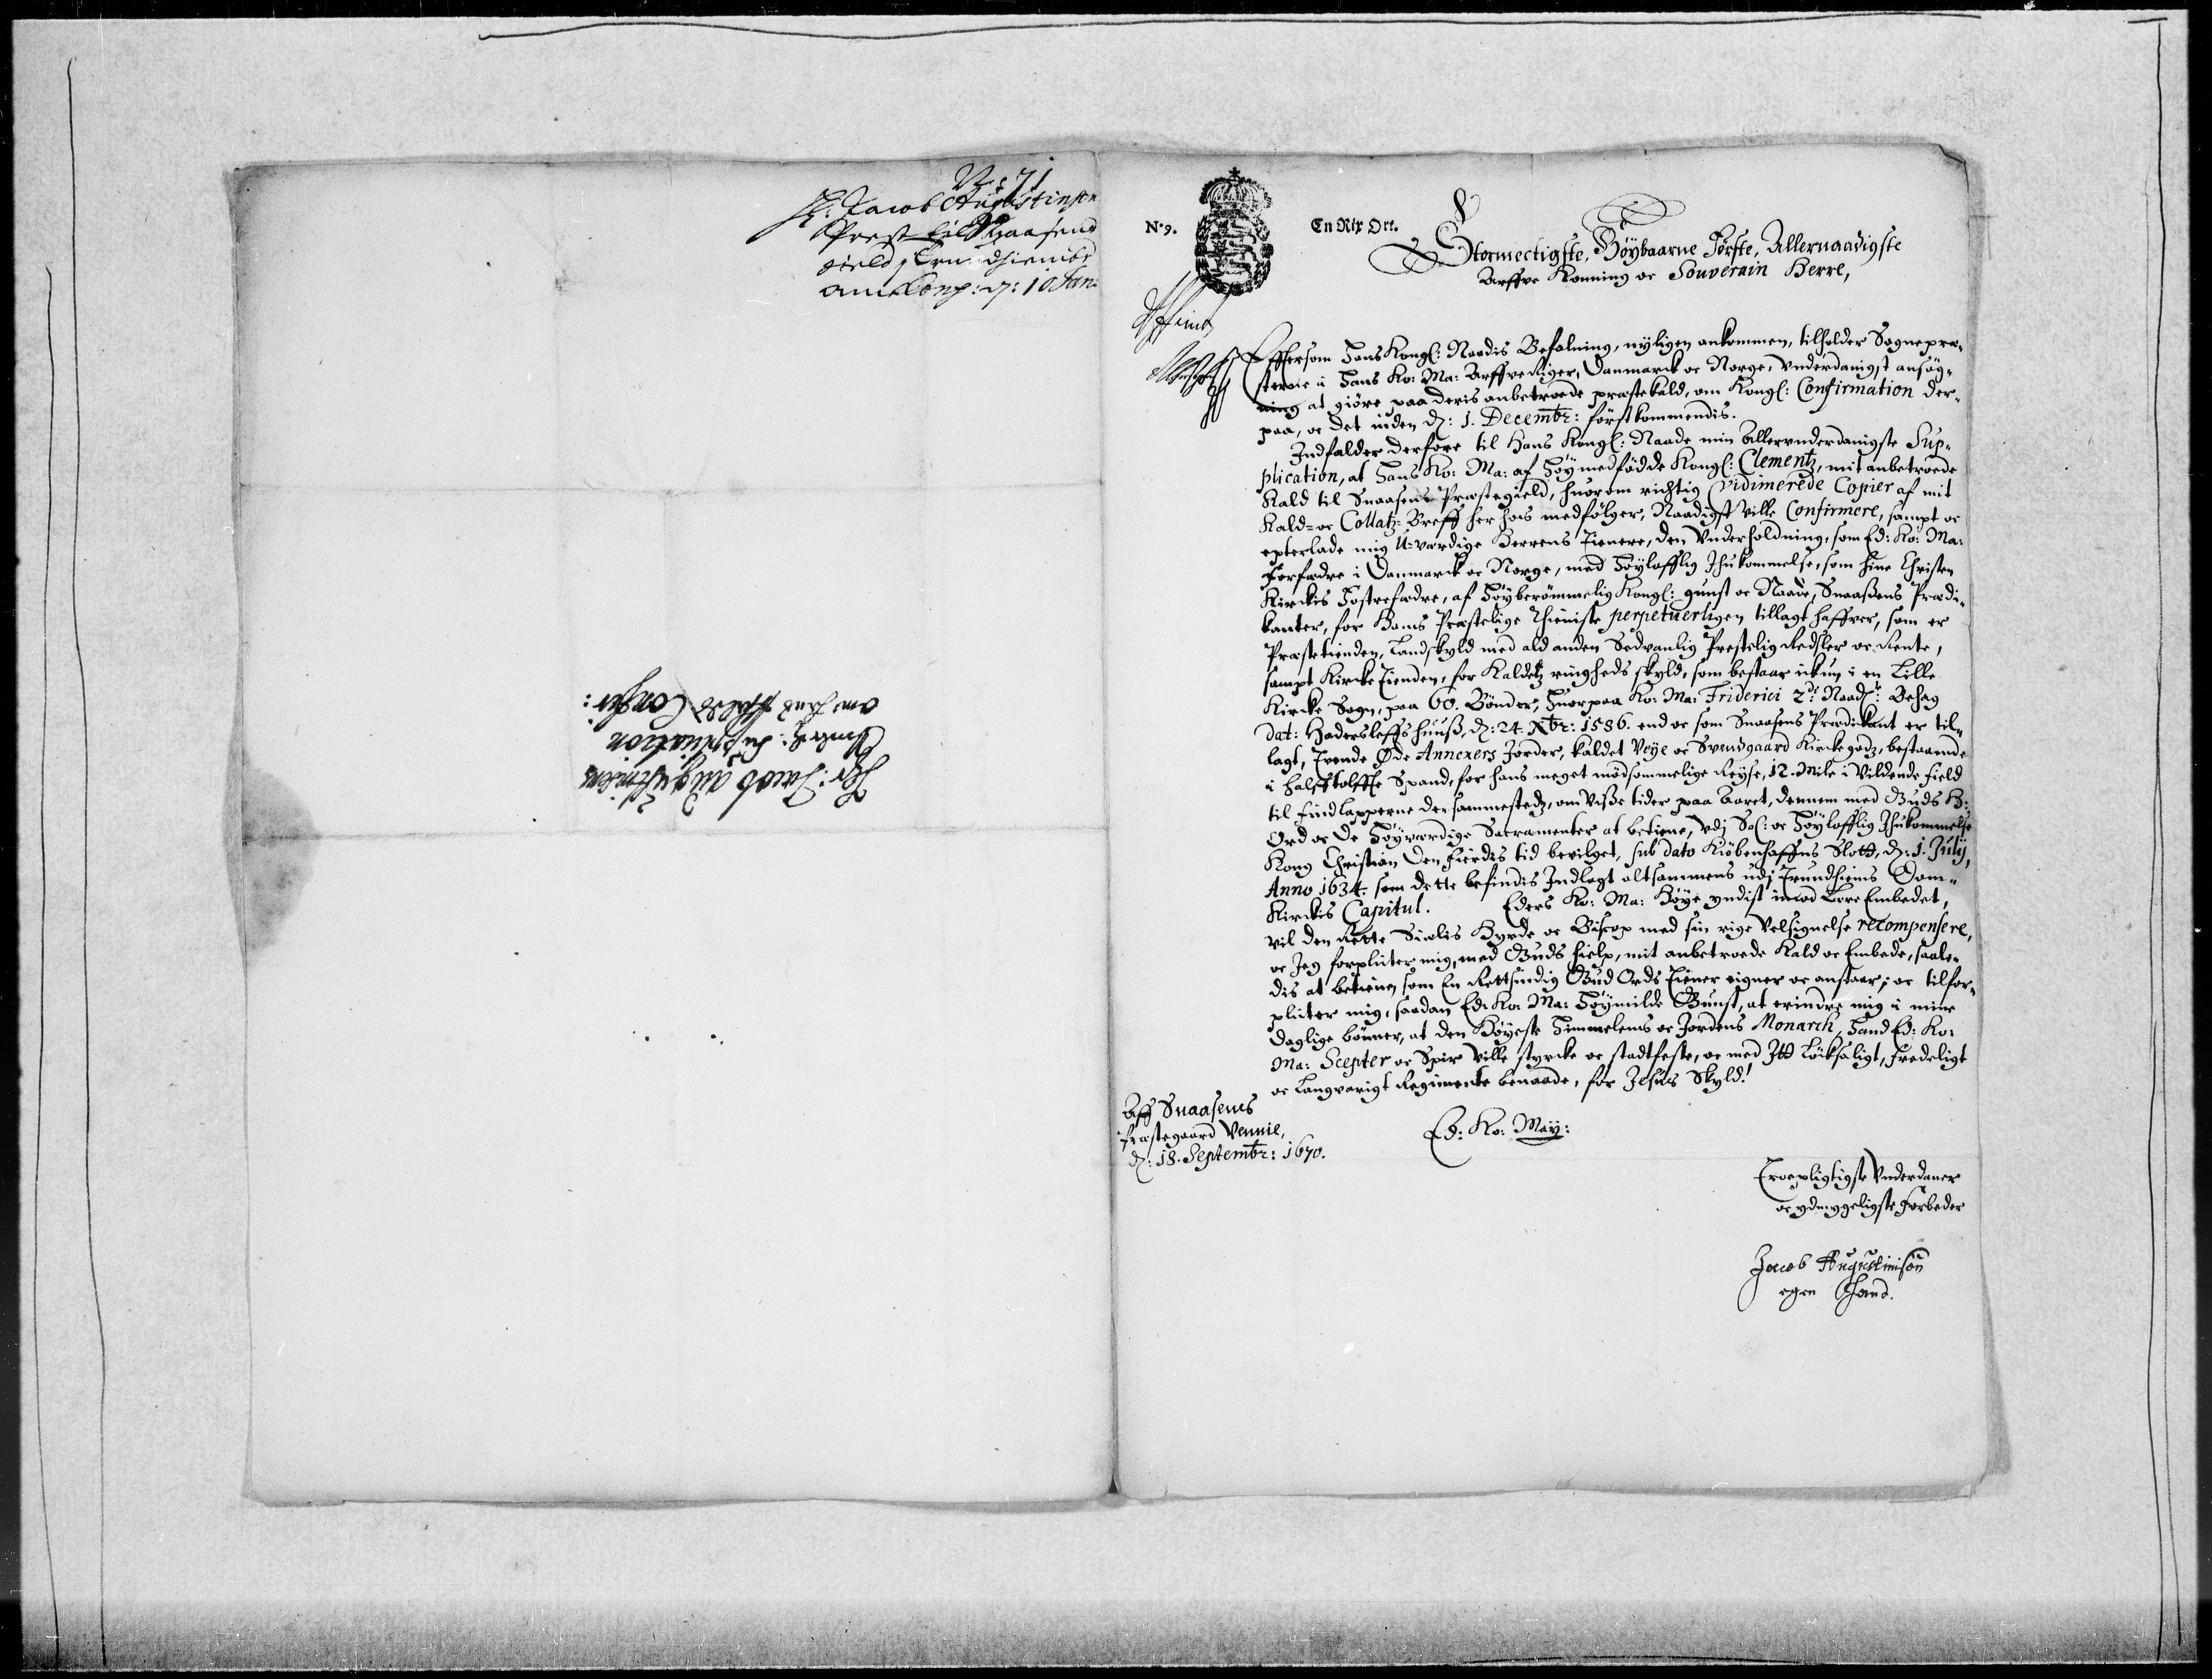 No: 71
H: Jacob Augustinsøn
Prest til Snaasens
gield i Trundhiembs
ampt Conf: d: 10 Jan:
Her: Jacob Augustinsens
Underd: Supplication
om hans Kalds Confir:
No. 9.
En Rix Ort.
Stormectigste, Høybaarne Første, Allernaadigste
Arffve Konning oc Souverain Herre,
Effersom Hans Kongl: Naadis Befalning, nyligen ankommen, tilholder Sognepræ-
sterne i Hans Ko: Ma: Arffve Riger, Danmarck oc Norge, Vnderdanigst ansøg-
ning at giøre paa deris anbetroede præstekald, om Kongl: Confirmation der-
paa, oc det inden d: 1. Decembr: førstkommendis.
Indfalder derfore til Hans Kongl: Naade min Allervnderdanigste Sup-
plication, at Hans Ko: Ma: af Høy medfødde Kongl: Clementz, mit anbetroede
Kald til Snaasens Præstegield, huorom richtig Vidimerede Copier af mit
Kald- oc Collatz- Breff her hos medfølger, Naadigst ville Confirmere, sampt oc
epterlade mig U-værdige Herrens Tienere, den Vnderholdning, som Ed: Ko: Ma:
Forfædre i Danmarck oc Norge, med Høylofflig Ihukommelse, som hine Christen
Kirckis Fostrefædre, af Høyberømmelig Kongl: gunst oc Naade, Snaasens Prædi-
kanter, for Hans Præstelige Thieniste perpetuerligen tillagt haffver, som er
Præstetienden, Landskyld med ald anden Sedvanlig Prestelig Redsler oc Rente,
sampt Kircke Tienden, for Kaldetz ringheds skyld, som bestaar ikun i en Lille
Kircke Sogn, paa 60. Bønder, Huorpaa Ko: Ma: Friderici 2di Naadst: Behag
dat: Hadersleffs huuß, d: 24. Xbr: 1586. end oc som Snaasens Prædikant er til-
lagt, Tvende Øde Annexers Jorder, kaldet Veye oc Svendgaard Kirckegodz, bestaaende
i halfftolffte Spand, for hans meget mødsommelige Reyse, 12. Mile i Vildende field
til Findlapperne dersammestedz, om Visse tider paa Aaret, dennem med Guds H:
Ord oc de Høyværdige Sacramenter at betiene, Vdj Sal: oc Høylofflig Ihukommelse
Kong Christian den fierdis tid bevilget, sub dato Kiøbenhaffns Slott, d: 1. Julij,
Anno 1634. som dette befindis Indlagt altsammens udj Trundhiems Dom-
Kirckis Capitul. Eders Ko: Ma: Høye yndist imod Lære Embedet,
vil den Rette Siælis Hyrde oc Biscop med sin rige Velsignelse recompensere,
oc Jeg forplicter mig, med Guds hielp, mit anbetroede Kald oc Embede, saale-
dis at betiene, som En Rettsindig Gud Ords Tiener eigner oc anstaar; oc tilfor-
plicter mig, saadan Ed: Ko: Ma: Høymilde Gunst, at erindre mig i mine
daglige bønner, at den Høyeste Himmelens oc Jordens Monarch, Hand Ed: Ko:
Ma: Scepter oc Spir ville styrcke oc stadfeste, oc med Itt Løcksaligt, fredeligt
oc Langvarigt Regimente benaade, for Jesus Skyld!
Aff Snaasens
Præstegaard Vennie,
d: 18. Septembr: 1670.
Ed: Ko: May:
Troepligtigste Vnderdaner
oc ydmygeligste Forbeder
Jacob Augustinisøn
egen Haand.